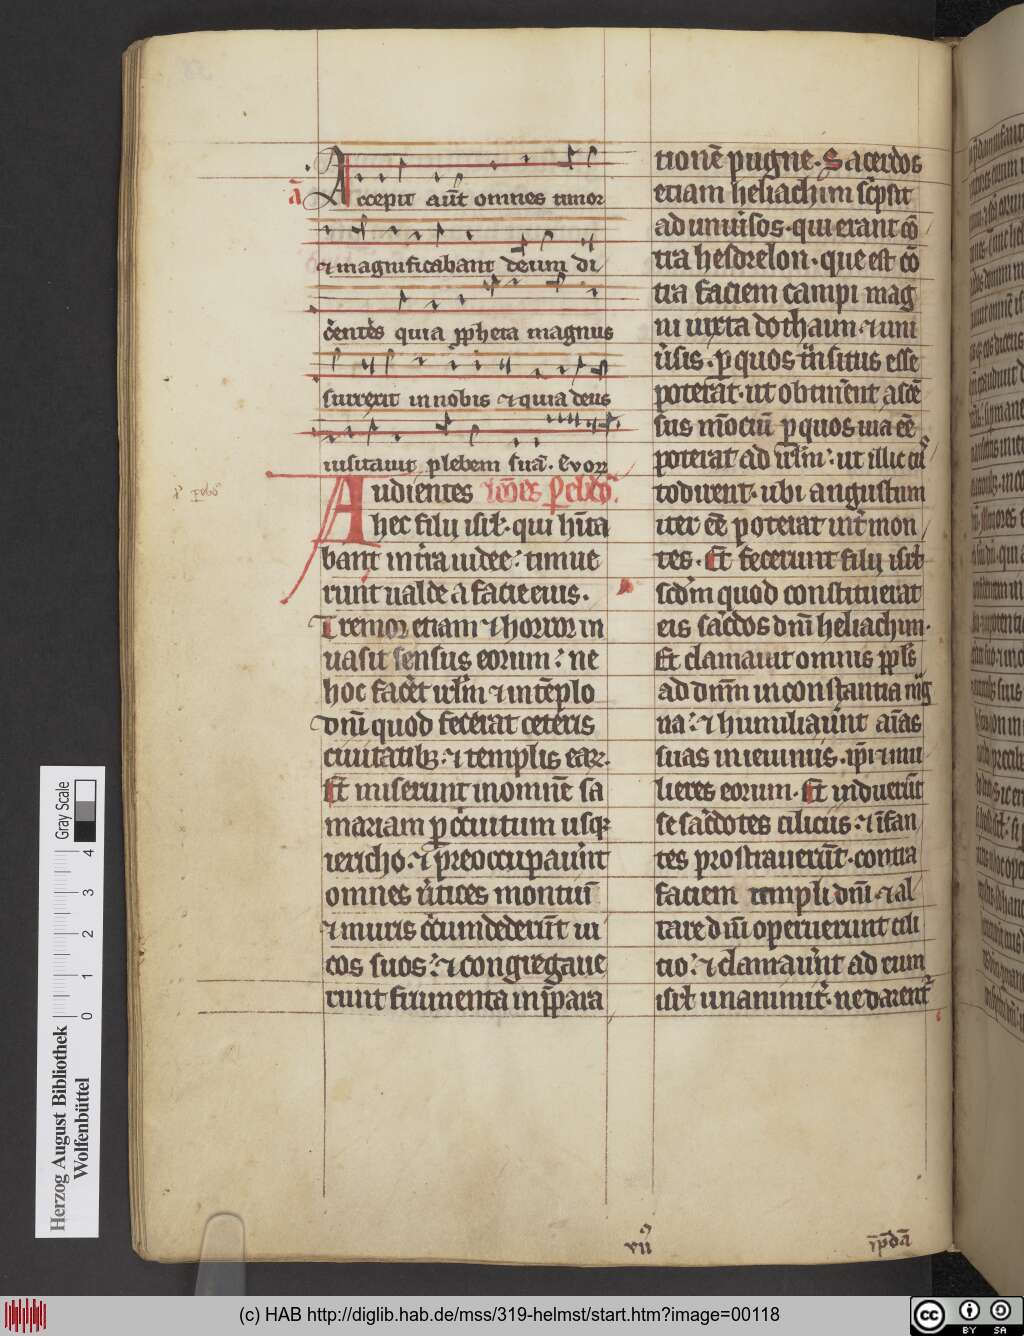 ā Accepit aūt omnes timor
⁊ magnificabant deum di
centes quia ꝓpheta magnus
surrexit in nobis ⁊ quia deus
uisitauit plebem suā. Evoꝝ
Audientes
hec filij isrł. qui hīta
bant in tr̄a iudee: timue
runt ualde a facie eius.
Tremor etiam ⁊ horror in
uasit sensus eorum: ne
hoc facet irlm̄ ⁊ in tēplo
dn̄i quod fecerat ceteris
ciuitatibꝫ ⁊ templis eaꝝ.
Et miserunt in omnē sa
mariam ꝑ ccuitum usqꝫ
iericho. ⁊ preoccupauer̄t
omnes u̾tices montiū
⁊ muris c̾cumdederūt ui
cos suos: ⁊ congregaue
runt frumenta in p̄para
tionē pugne. Sacerdos
etiam heliachim sc̾psit
ad uniu̾sos. qui erant cō
tra hesdrelon. que est cō
tra faciem campi mag
ni iuxta dothaim ⁊ uni
u̾sis. ꝑ quos tn̄situs esse
poterāt. ut obtinēent ascē
sus mōciū ꝑ quos uia eē
poterat ad irlm̄: ut illic cu̾
todirent. ubi angustum
iter eē poterat int̾ mon
tes. Et fecerunt filij isrł
scd̄m quod constituerat
eis sac̾dos dn̄i heliachim.
Et clamauit omnis ppl̄s
ad dn̄m in constantia mg̾
na: ⁊ humiliauer̄t aīas
suas in ieiuniis. ip̄i ⁊ mu
lieres eorum. Et induerūt
se sac̾dotes ciliciis: ⁊ īfan
tes prostrauerūt. contra
faciem templi dn̄i ⁊ al
tare dn̄i operuerunt cili
cio: ⁊ clamauer̄t ad deum
isrł unanimit̾. ne darent̾
vii
ip̄dā
Herzog August Bibliothek
Wolfenbüttel
0 1 2 3 4
Gray Scale
(c) HAB http://diglib.hab.de/mss/319-helmst/start.htm?image=00118
cc BY SA